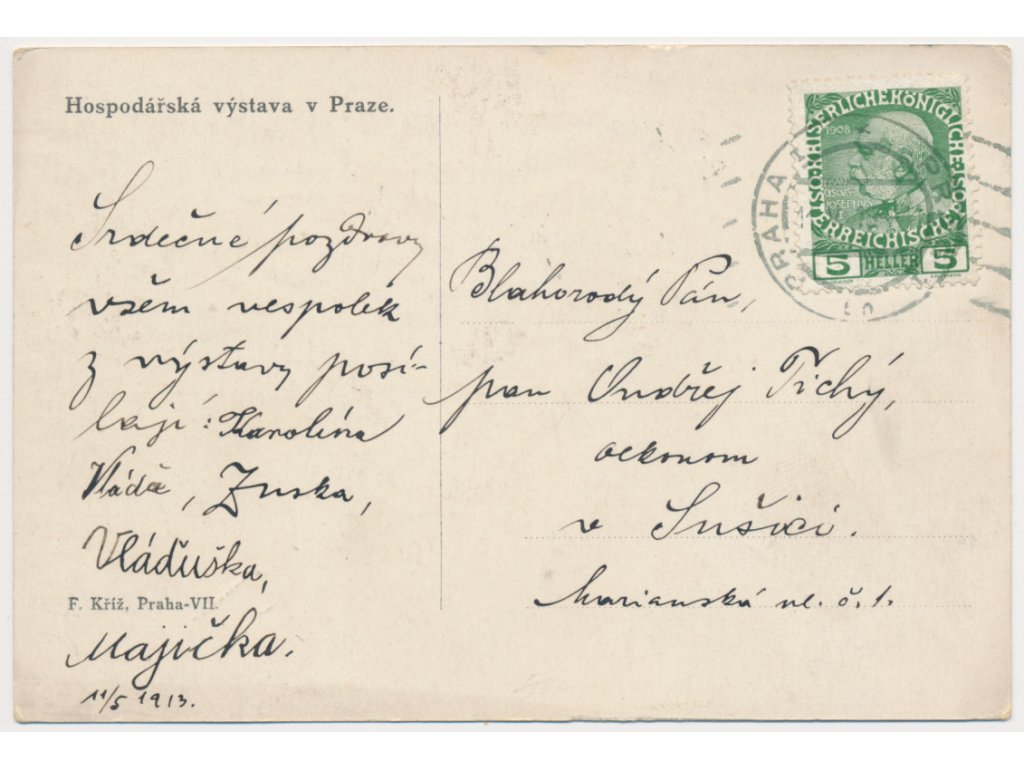 Hospodářská výstava v Praze.
Srdečné pozdravy
všem vespolek
z výstavy posí-
lají: Karolína
Vláďa, Zuska,
Vláďuška,
F. Kříž, Praha-VII.
Majička.
11/5 1913.
KAISERLICHE KÖNIGLICHE
ÖSTERREICHISCHE
1908
5 HELLER 5
PRAHA
Blahorodý Pán,
pan Ondřej Tichý,
oekonom
v Sušici.
Marianská ul. č. 1.